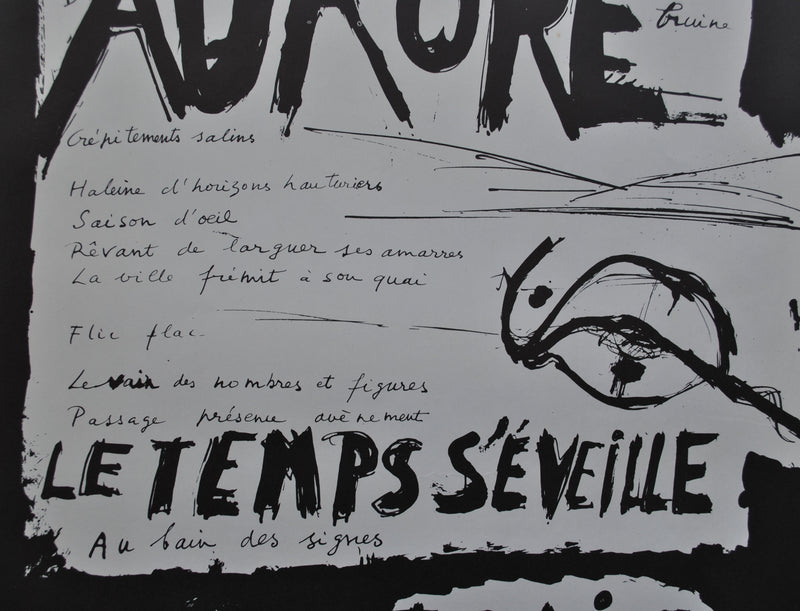 AURORE
bruine
Crépitements salins
Haleine d'horizons hauturiers
Saison d'oeil
Rêvant de larguer ses amarres
La ville frémit à son quai
Flic flac
Le vain des nombres et figures
Passage présence avènement
LE TEMPS S'ÉVEILLE
Au bain des signes